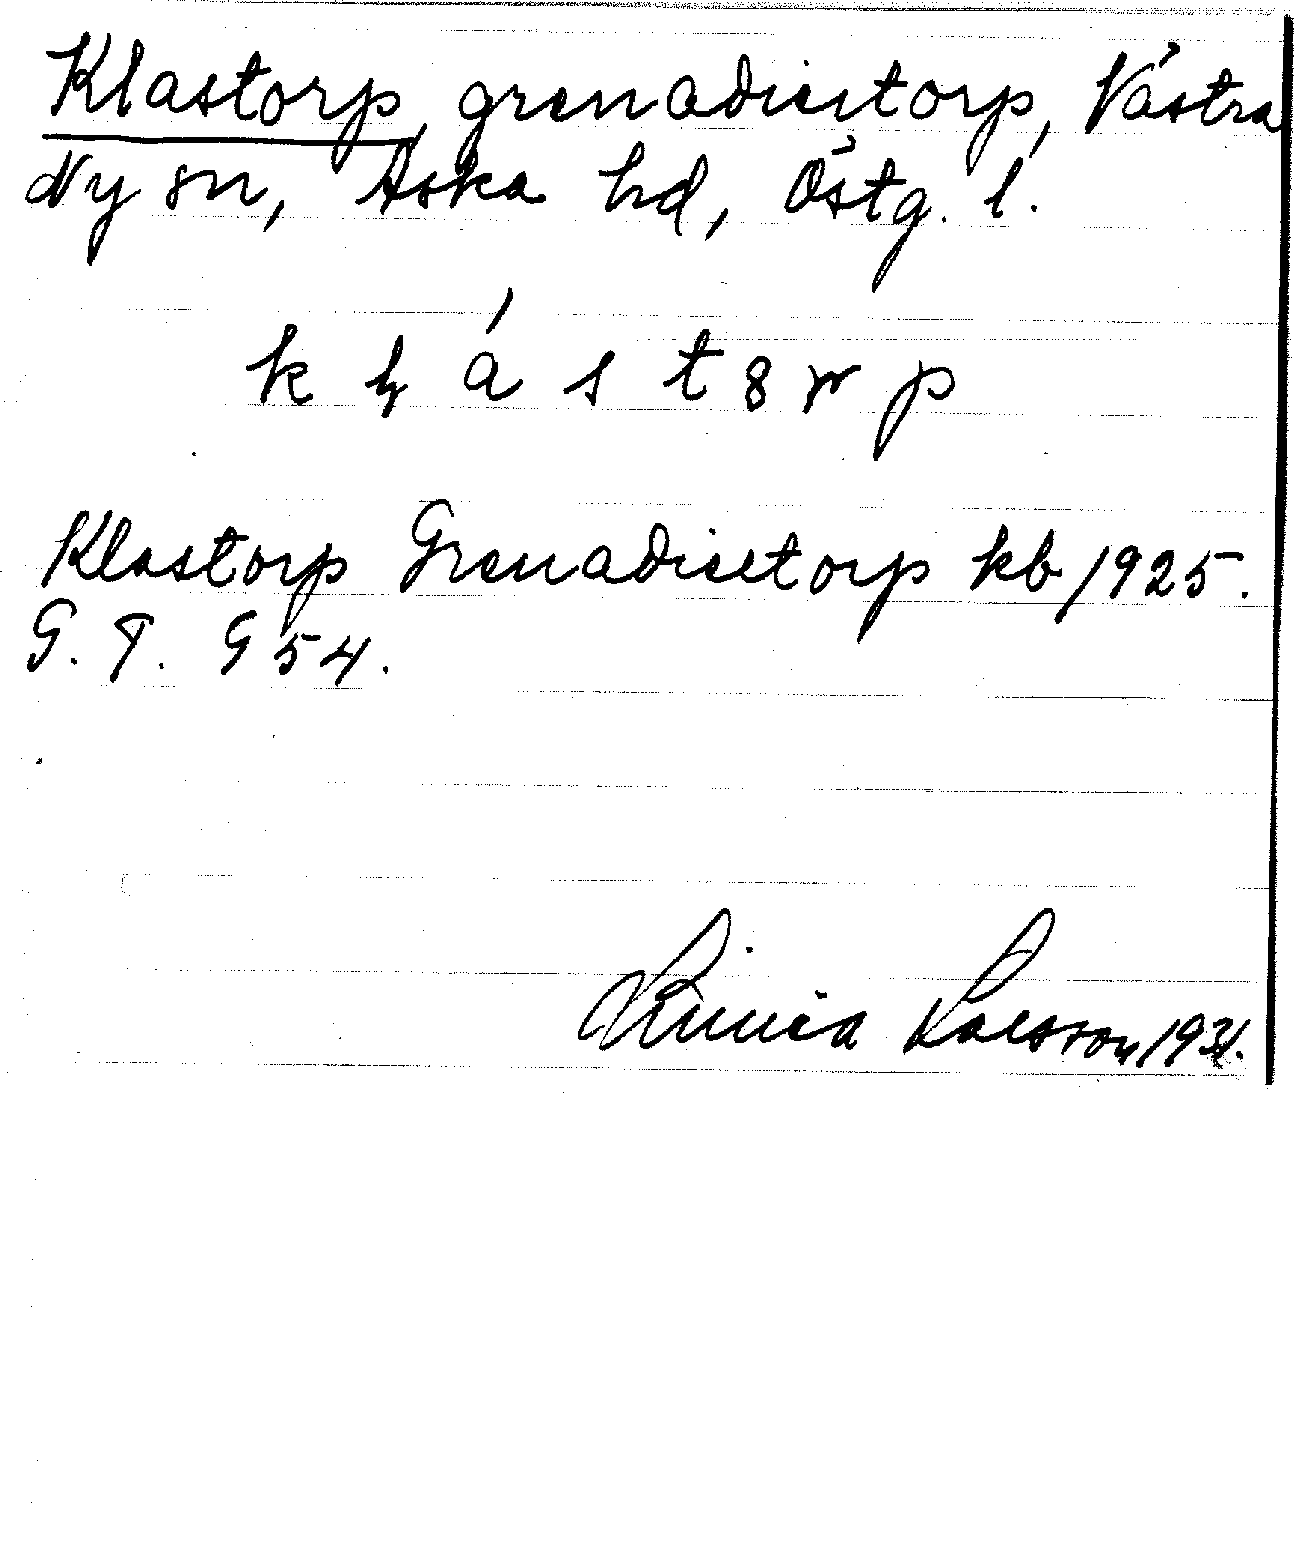 Klastorp, grenadiertorp, Västra
Ny sn, Aska hd, Östg. l.
k ł á s t 8 r p
Klastorp Grenadiertorp kb 1925.
G. T. G 54.
Linnéa Larsson 1931.